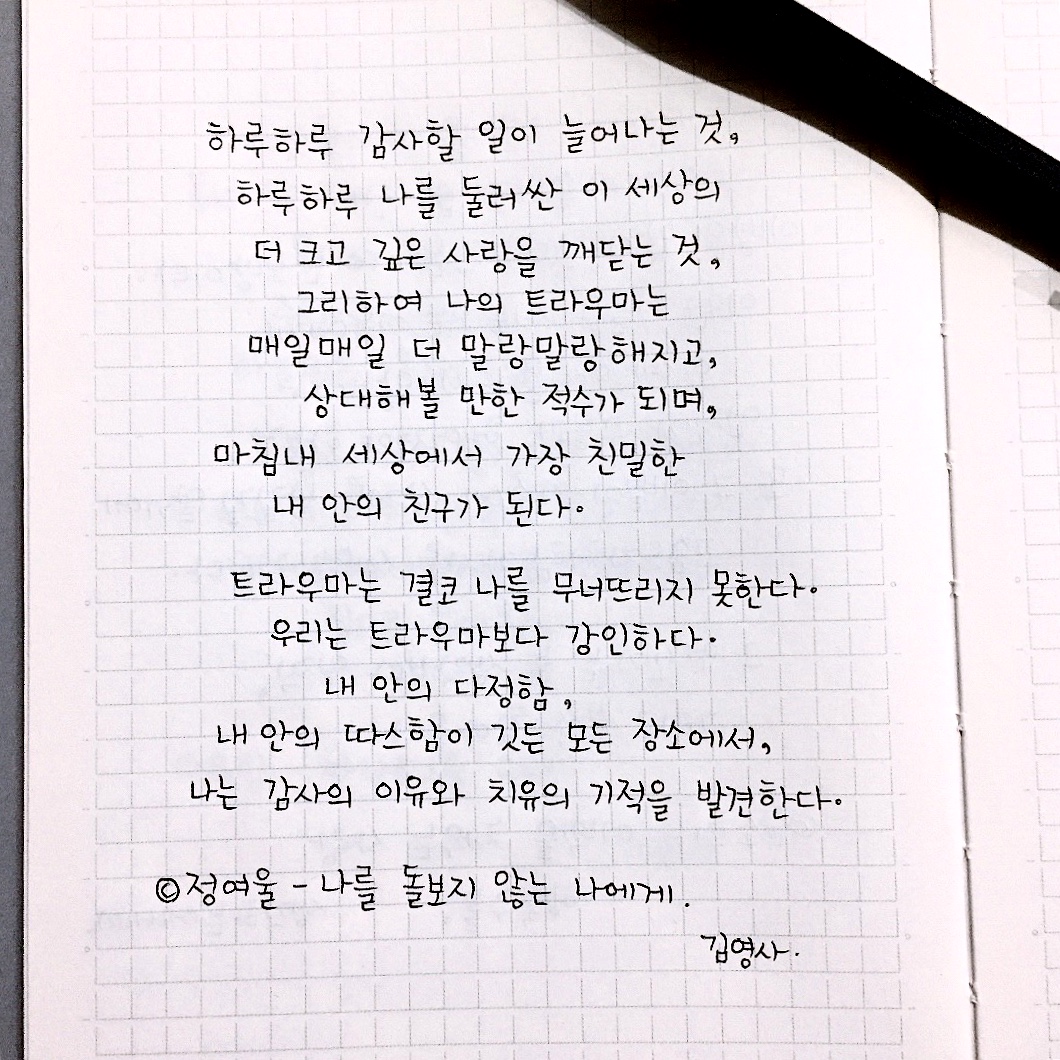 하루하루 감사할 일이 늘어나는 것,
하루하루 나를 둘러싼 이 세상의
더 크고 깊은 사랑을 깨닫는 것,
그리하여 나의 트라우마는
매일매일 더 말랑말랑해지고,
상대해볼 만한 적수가 되며,
마침내 세상에서 가장 친밀한
내 안의 친구가 된다.
트라우마는 결코 나를 무너뜨리지 못한다.
우리는 트라우마보다 강인하다.
내 안의 다정함,
내 안의 따스함이 깃든 모든 장소에서,
나는 감사의 이유와 치유의 기적을 발견한다.
©정여울 - 나를 돌보지 않는 나에게.
김영사.